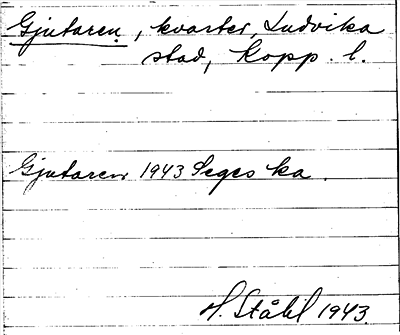 Gjutaren, kvarter, Ludvika
stad, Kopp. l.
Gjutaren 1943 Seges ka.
H. Ståhl 1943.